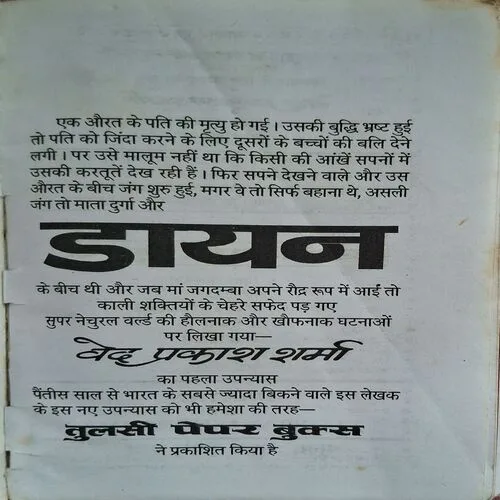 एक औरत के पति की मृत्यु हो गई। उसकी बुद्धि भ्रष्ट हुई
तो पति को जिंदा करने के लिए दूसरों के बच्चों की बलि देने
लगी। पर उसे मालूम नहीं था कि किसी की आंखें सपनों में
उसकी करतूतें देख रही हैं। फिर सपने देखने वाले और उस
औरत के बीच जंग शुरु हुई, मगर वे तो सिर्फ बहाना थे, असली
जंग तो माता दुर्गा और
डायन
के बीच थी और जब मां जगदम्बा अपने रौद्र रूप में आईं तो
काली शक्तियों के चेहरे सफेद पड़ गए
सुपर नेचुरल वर्ल्ड की हौलनाक और खौफनाक घटनाओं
पर लिखा गया—
वेद प्रकाश शर्मा
का पहला उपन्यास
पैंतीस साल से भारत के सबसे ज्यादा बिकने वाले इस लेखक
के इस नए उपन्यास को भी हमेशा की तरह—
तुलसी पेपर बुक्स
ने प्रकाशित किया है